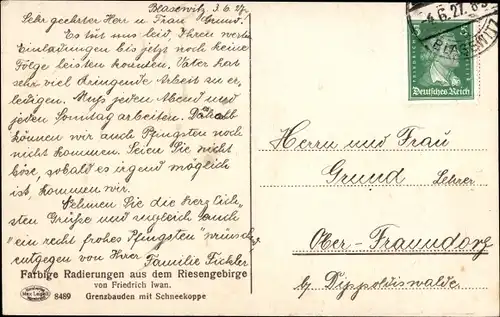 Blasewitz, 3.6.27.
Sehr geehrter Herr u Frau Grund.
Es tut uns leid, Ihren werten
Einladungen bis jetzt noch keine
Folge leisten konnten. Vater hat
sehr viel dringende Arbeit zu er-
ledigen. Muss jeden Abend und
jeden Sonntag arbeiten.
können wir auch Pfingsten noch
nicht kommen. Seien Sie nicht
böse, sobald es irgend möglich
ist, kommen wir.
Nehmen Sie die herzlich-
sten Grüße und zugleich auch
"ein recht frohes Pfingsten"
entgegen von Ihrer Familie Fickler
Farbige Radierungen aus dem Riesengebirge
von Friedrich Iwan.
8489 Grenzbauden mit Schneekoppe
4.6.27.
BLASEWITZ
5 5
Deutsches Reich
Herrn und Frau
Grund Lehrer
Ober-Frauendorf
b/ Dippoldiswalde.